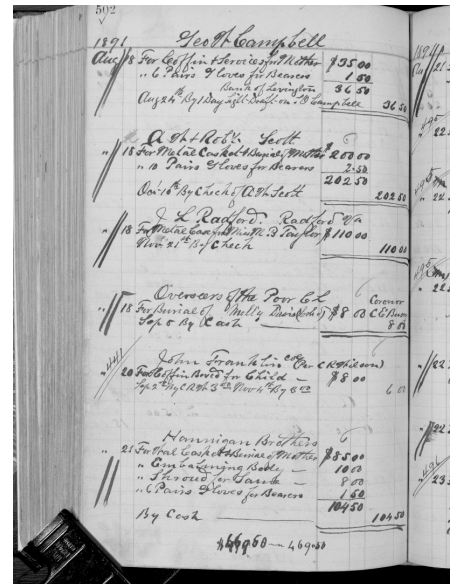 502
1891 Geo W Campbell
Aug 18 For Coffin & Services for Mother $35.00
" 6 Pairs Gloves for Bearers 1 50
Bank of Lexington 36 50
Aug 24th By 1 Day Sight Draft on Campbell 36 50
A. & Robt. Scott
" 18 For Metal Casket & Burial of Mother $200 00
" 10 Pairs Gloves for Bearers 2.50
202 50
Oct 10th By Check of Scott 202 50
J. L. Radford. Radford Va
" 18 For Metal Case for Miss M. B Taylor $110 00
Nov 21st By Check 110 00
Overseers of the Poor
Coroner
" 18 For Burial of Davis $8 00
Sep 5 By Cash 8 00
John Franklin col
" 20 For Coffin for Child $8 00
6 00
Hannigan Brothers
" 21 For Casket & Burial of Mother $85 00
" Embalming Body 10 00
" Shroud for Same 8 00
" 6 Pairs Gloves for Bearers 1 50
104 50
By Cash 104 50
469.50